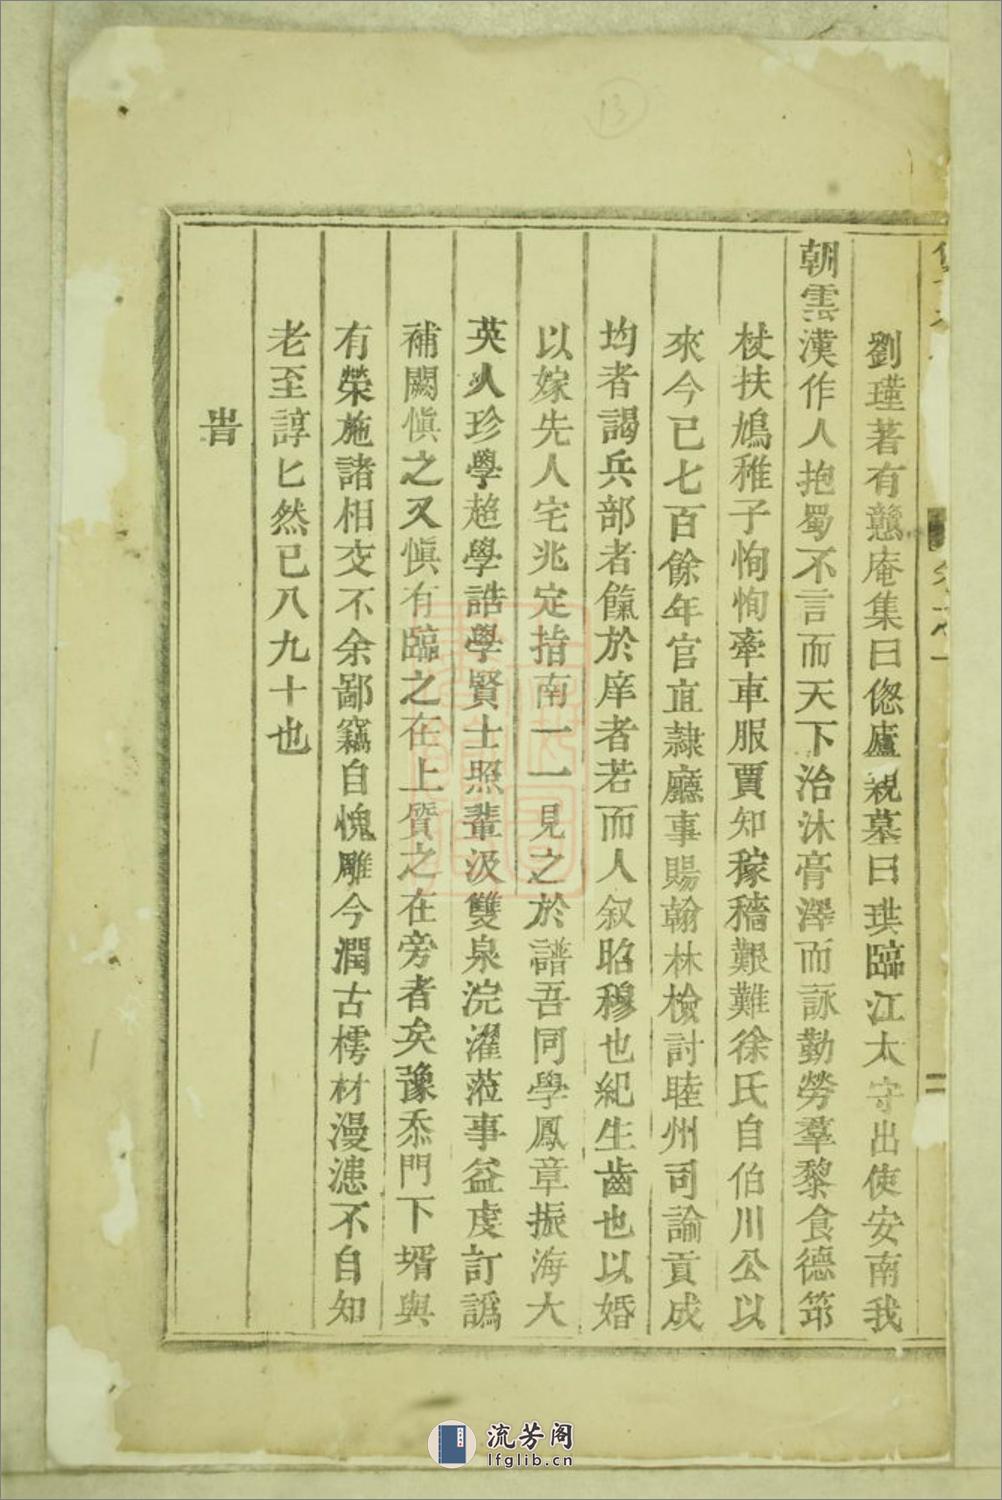 劉瑾著有戇庵集曰偬廬親墓曰珙臨江太守出使安南我
朝雲漢作人抱蜀不言而天下治沐膏澤而詠勤勞羣黎食德笻
杖扶鳩稚子恂恂牽車服賈知稼穡艱難徐氏自伯川公以
來今已七百餘年官直隷廳事賜翰林檢討睦州司諭貢成
均者謁兵部者餼於庠者若而人叙昭穆也紀生齒也以婚
以嫁先人宅兆定指南一一見之於譜吾同學鳳章振海大
英人珍學趨學誥學賢士照輩汲雙泉浣濯蒞事益虔訂譌
補闕愼之又愼有臨之在上質之在旁者矣豫忝門下壻與
有榮施諸相交不余鄙竊自愧雕今潤古樗材漫漶不自知
老至諄匕然已八九十也
旹
13
流芳阁
lfglib.cn